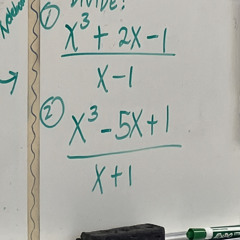 DIVIDE:
① x³ + 2x - 1
x - 1
② x³ - 5x + 1
x + 1